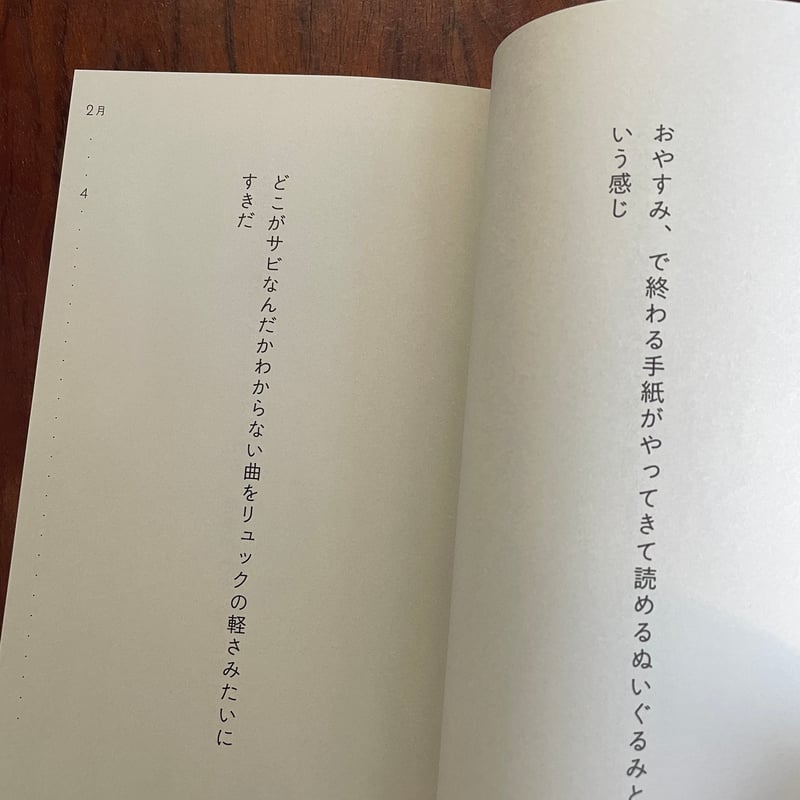 おやすみ、で終わる手紙がやってきて読めるぬいぐるみと
いう感じ
どこがサビなんだかわからない曲をリュックの軽さみたいに
すきだ
2月
4